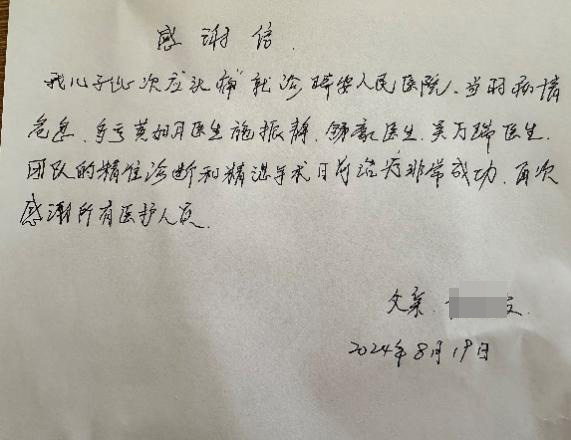 感谢信.
我儿子此次应"头痛"就诊瑞安人民医院,当时病情
危急,多亏黄如月医生施振静,邹毅医生,吴万瑞医生.
团队的精准诊断和精湛手术目前治疗非常成功,再次
感谢所有医护人员.
父亲.
2024年8月19日